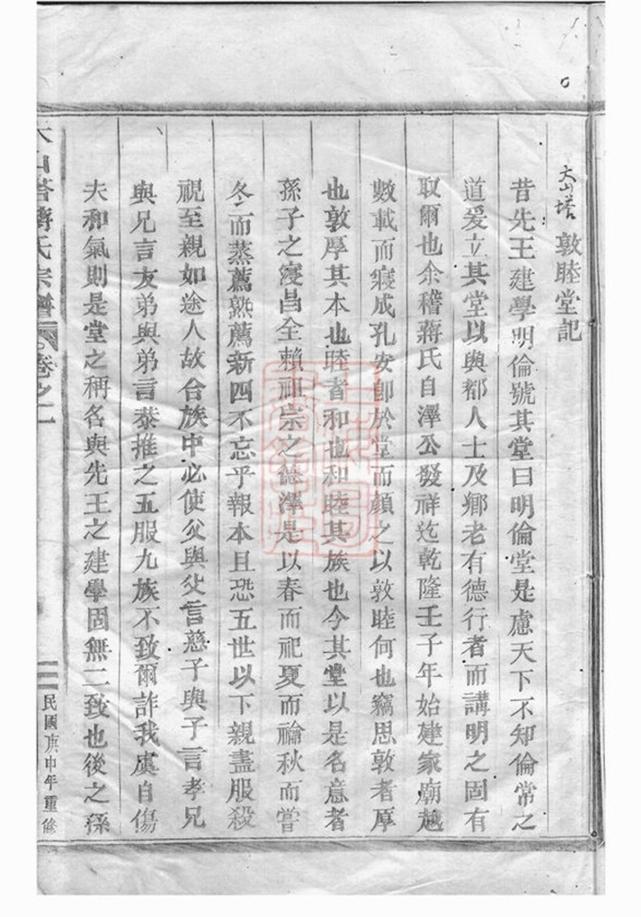 大山塔 敦睦堂記
昔先王建學明倫號其堂曰明倫堂是慮天下不知倫常之
道爰立其堂以與都人士及鄉老有德行者而講明之固有
取爾也余稽蔣氏自澤公發祥迄乾隆壬子年始建家廟越
數載而寢成孔安卽於堂而顏之以敦睦何也竊思敦者厚
也敦厚其本也睦者和也和睦其族也今其堂以是名意者
孫子之寖昌全賴祖宗之德澤是以春而祀夏而禴秋而嘗
冬而蒸薦熟薦新四不忘乎報本且恐五世以下親盡服殺
視至親如途人故合族中必使父與父言慈子與子言孝兄
與兄言友弟與弟言恭推之五服九族不致爾詐我虞自傷
夫和氣則是堂之稱名與先王之建學固無二致也後之孫
大山塔蔣氏宗譜 卷之一
民國庚申年重修